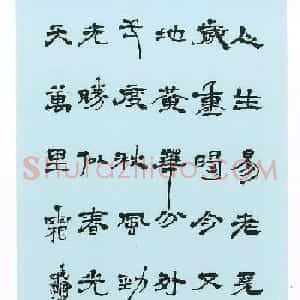 人生易老
歲重陽今又
地黃華分外
年度秋風勁
光勝似春光
天萬里霜
Shufaziliao.com